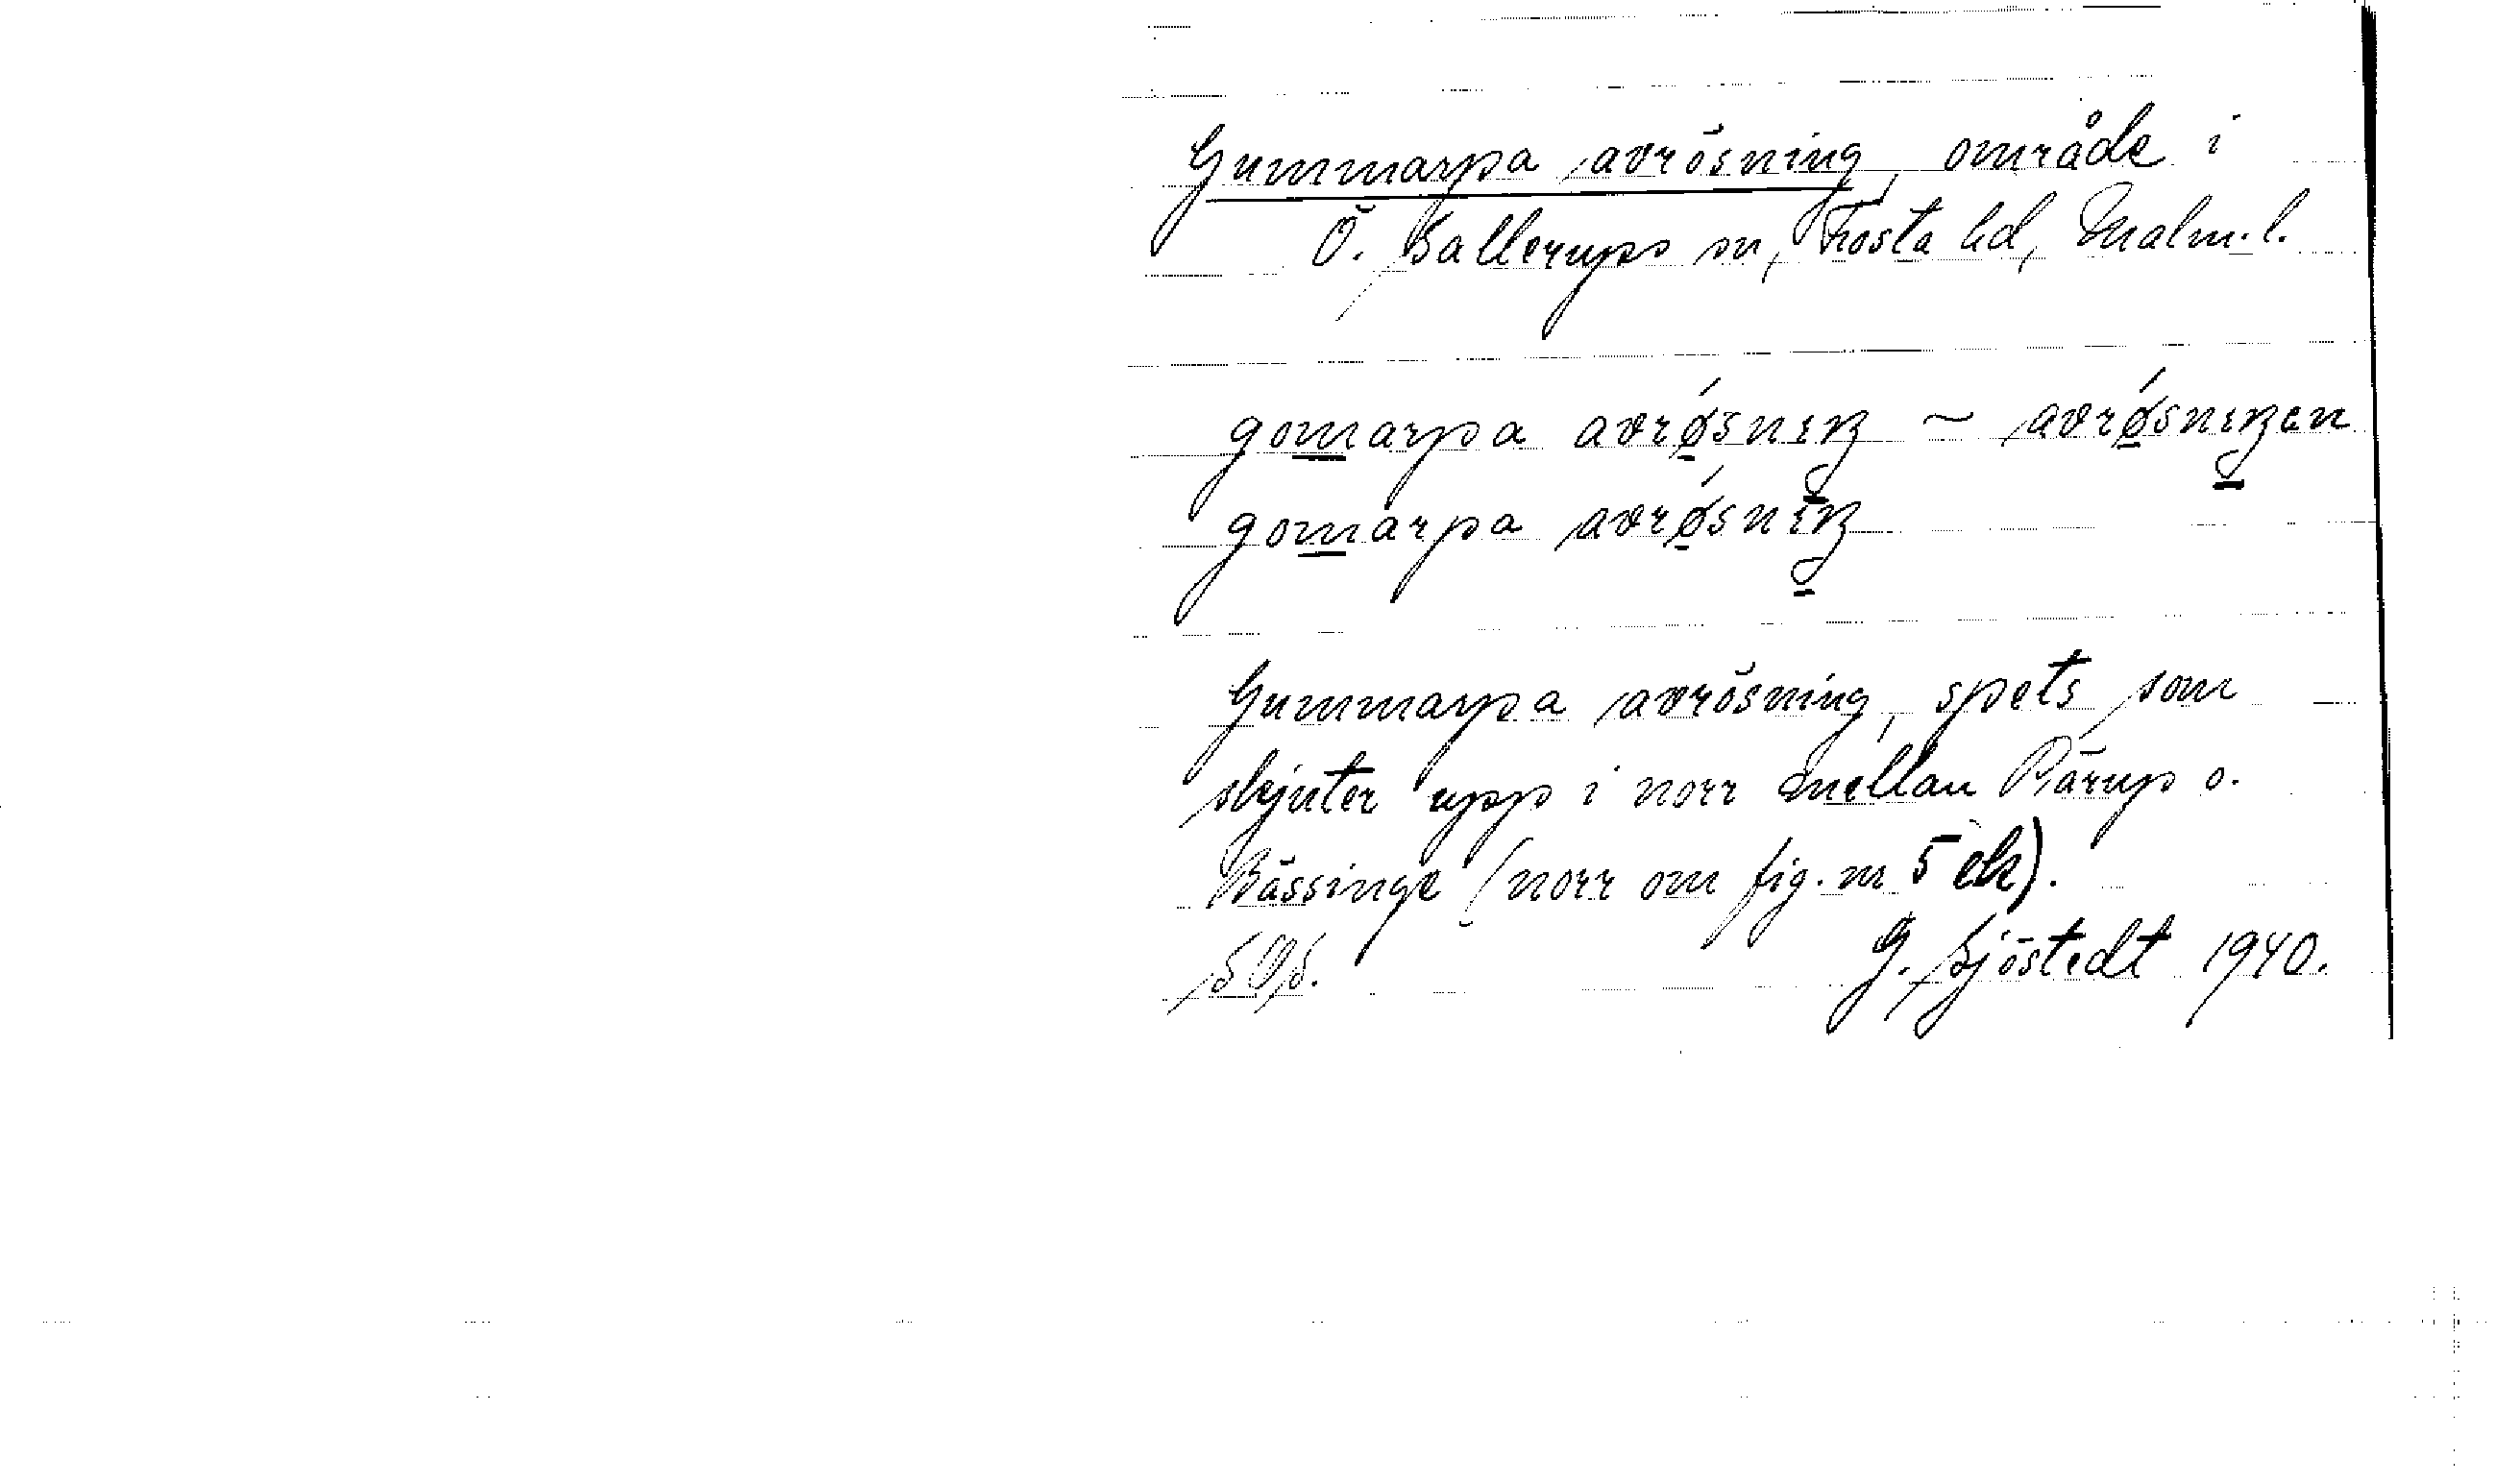 Gummarpa avrösning, område i
Ö. Sallerups sn, Frosta hd, Malm. l.
gomarpa avrǿsnıŋ ~ avrǿsnıŋen
gomarpa avrǿsnıŋ
Gummarpa avrösning, spets som
skjuter upp i norr mellan Pärup o.
Bässinge (norr om fig. nr 5 ek).
G. Sjöstedt 1940.